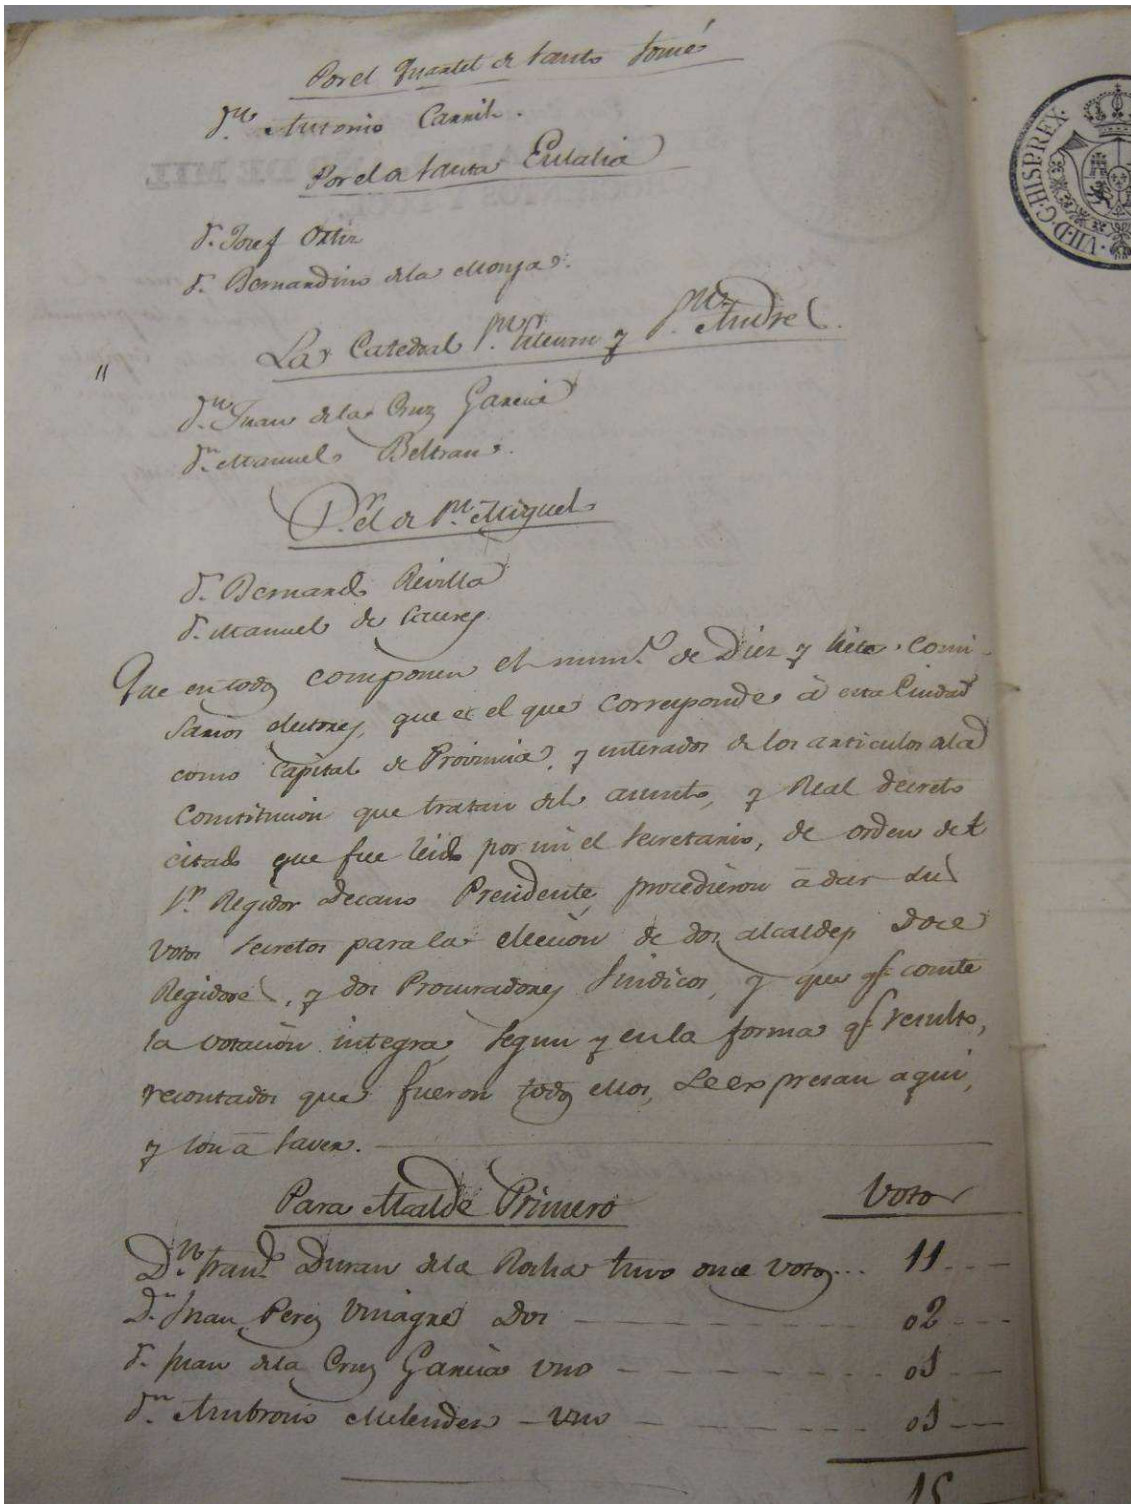 Por el Quartel de Santo Tomé
Dn. Antonio Carril.
Por el de Santa Eulalia
Dn. Josef Ortiz
Dn. Bernardino de la Monja.
La Catedral Sn. Estevan y Sn. Andres.
"
Dn. Juan de la Cruz Garcia
Dn. Manuel Beltran.
Pr. el de Sn. Miguel
Dn. Bernardo Revilla
Dn. Manuel de
Que en todos componen el numo. de Diez y Siete comi-
sarios electores, que es el que corresponde á esta Ciudad
como Capital de Provincia, y enterados de los articulos de la
Constitucion que tratan del asunto, y Real decreto
citado que fue leido por mi el Secretario, de orden del
Sr. Regidor Decano Presidente, procedieron á dar sus
votos secretos para la eleccion de dos alcaldes, Doce
Regidores, y dos Procuradores Sindicos, y para qe. conste
la votacion integra, segun y en la forma qe. resultó,
recontados que fueron todos ellos, se expresan aqui,
y son á saver.
Para Alcalde Primero Votos
Dn. Franco. Duran de la Rocha tuvo once votos... 11
Dn. Juan Perez Vinagre Dos 02
Dn. Juan de la Cruz Garcia uno 01
Dn. Ambrosio Melendez uno 01
15
VII·D·G·HISP·REX·